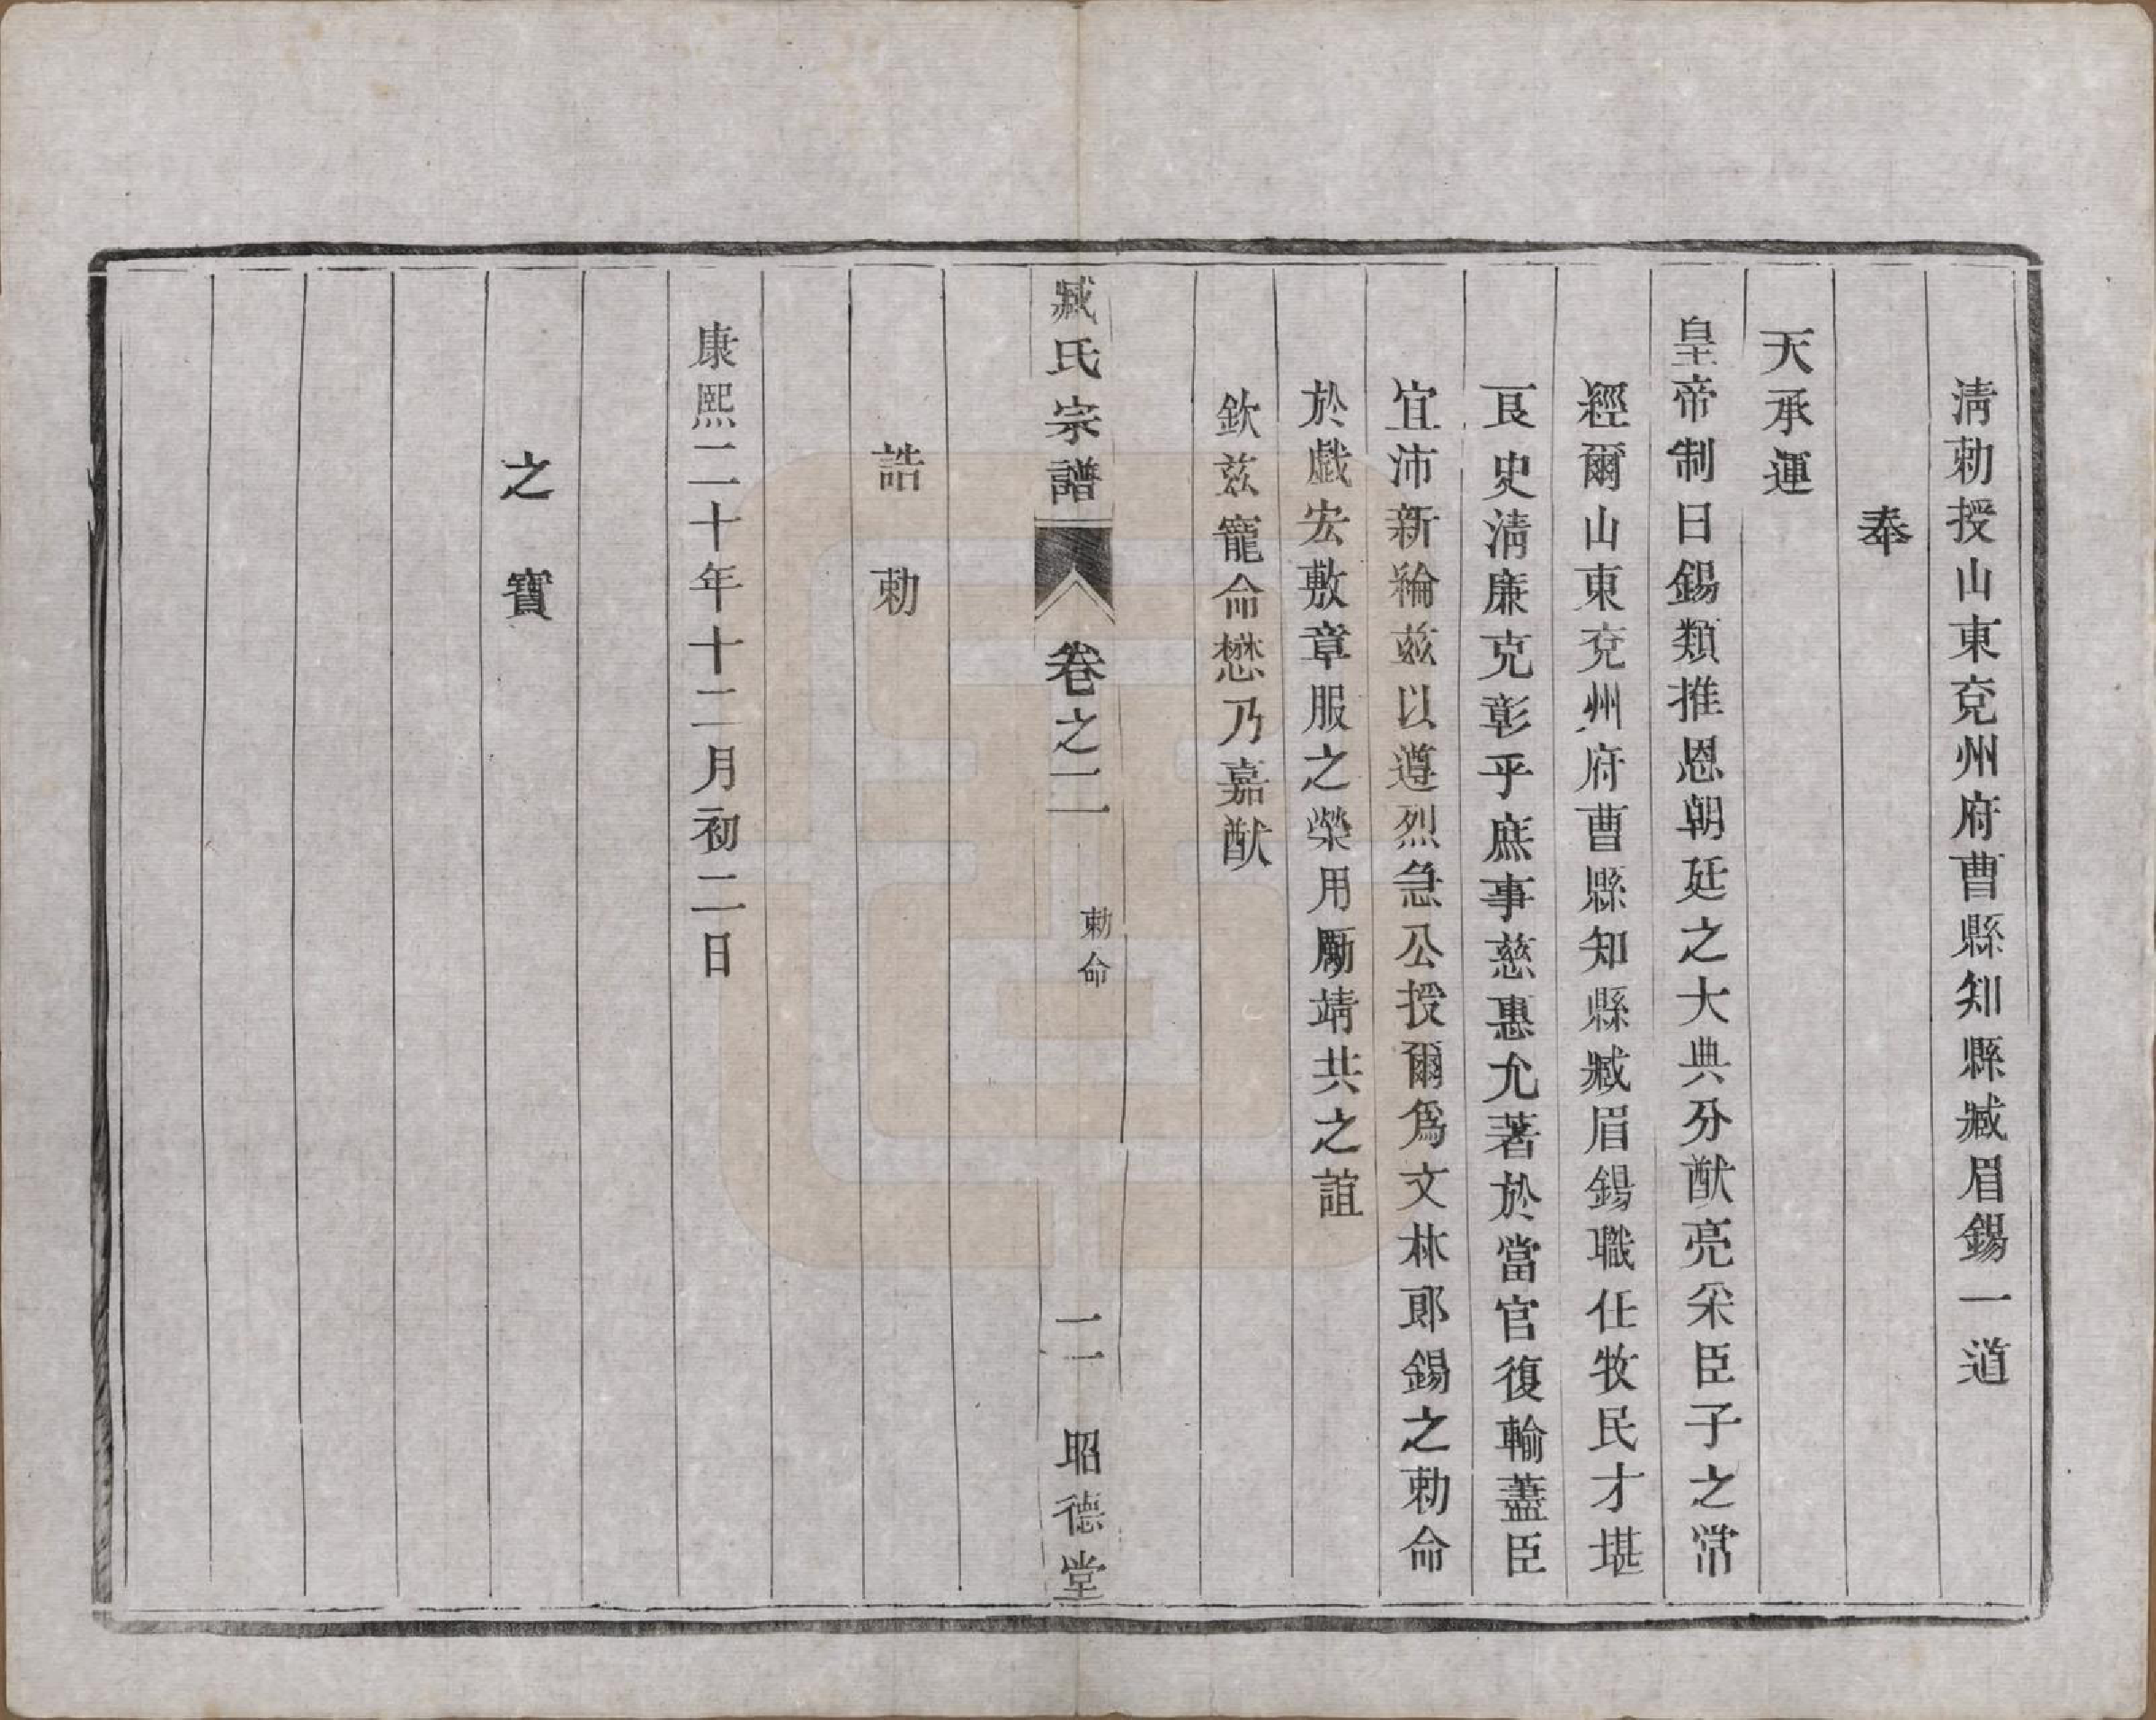 淸勅授山東兗州府曹縣知縣臧眉錫一道
奉
天承運
皇帝制曰錫類推恩朝廷之大典分猷亮采臣子之常
經爾山東兗州府曹縣知縣臧眉錫職任牧民才堪
良史淸廉克彰乎庶事慈惠尤著於當官復輸藎臣
宜沛新綸茲以遵烈急公授爾爲文林郎錫之勅命
於戲宏敷章服之榮用勵靖共之誼
欽茲寵命懋乃嘉猷
臧氏宗譜
卷之二
勅命
二
昭德堂
誥勅
康熙二十年十二月初二日
之寶